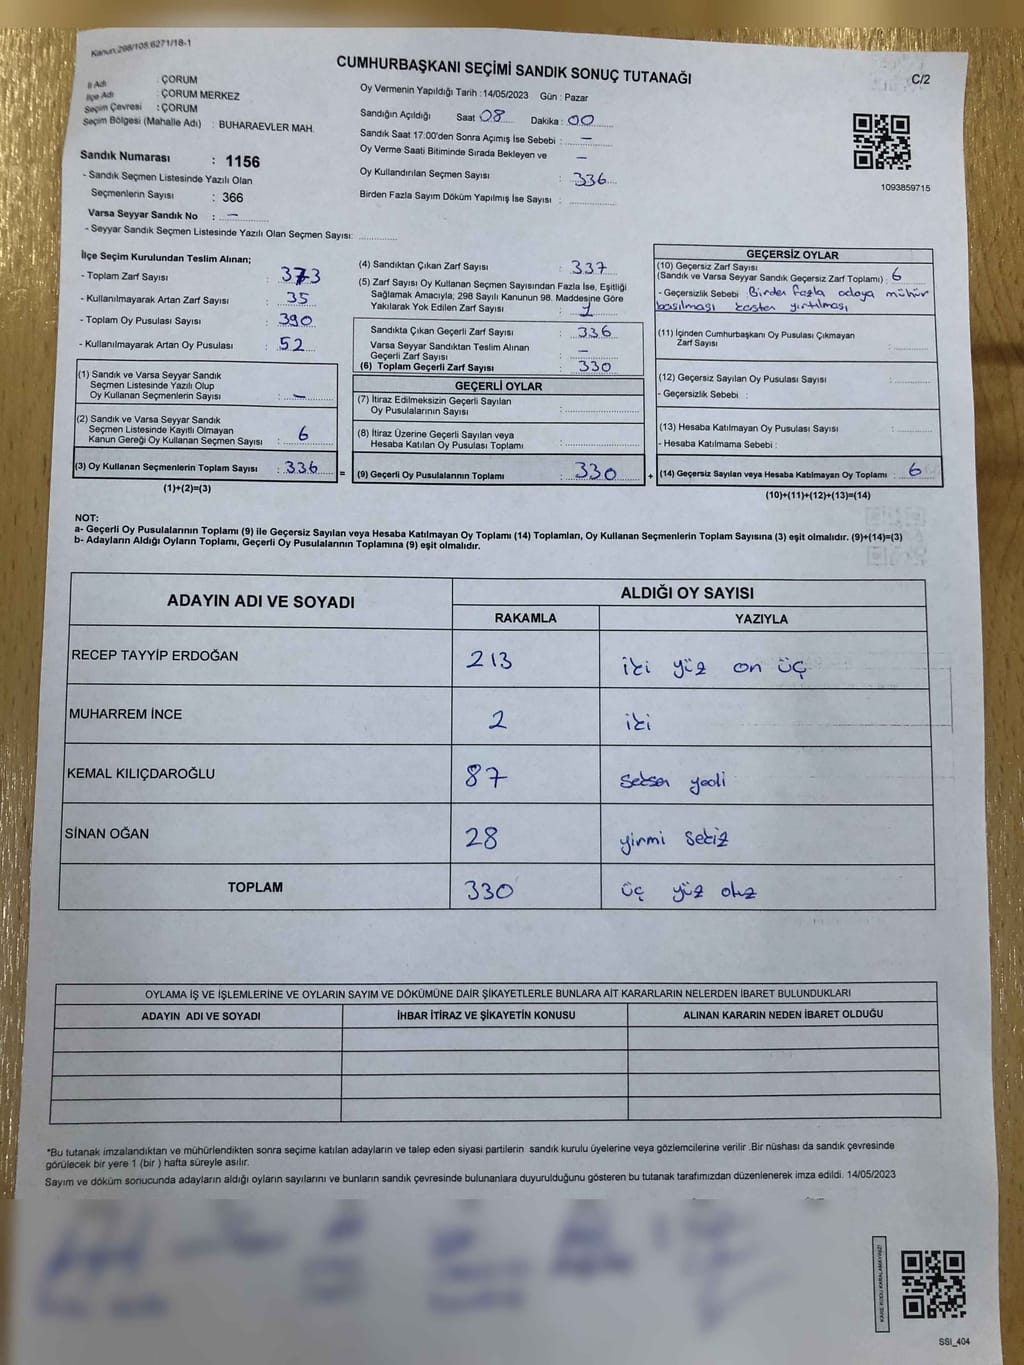 Kanun 298/108.6271/18-1
CUMHURBAŞKANI SEÇİMİ SANDIK SONUÇ TUTANAĞI
C/2
İl Adı : ÇORUM
İlçe Adı : ÇORUM MERKEZ
Seçim Çevresi : ÇORUM
Seçim Bölgesi (Mahalle Adı) : BUHARAEVLER MAH.
Sandık Numarası : 1156
- Sandık Seçmen Listesinde Yazılı Olan
Seçmenlerin Sayısı : 366
Varsa Seyyar Sandık No : –
- Seyyar Sandık Seçmen Listesinde Yazılı Olan Seçmen Sayısı: ............
Oy Vermenin Yapıldığı Tarih :14/05/2023 Gün : Pazar
Sandığın Açıldığı Saat 08 Dakika : 00
Sandık Saat 17:00'den Sonra Açımış İse Sebebi : –
Oy Verme Saati Bitiminde Sırada Bekleyen ve –
Oy Kullandırılan Seçmen Sayısı : 336
Birden Fazla Sayım Döküm Yapılmış İse Sayısı : ............
1093859715
İlçe Seçim Kurulundan Teslim Alınan;
- Toplam Zarf Sayısı : 373
- Kullanılmayarak Artan Zarf Sayısı : 35
- Toplam Oy Pusulası Sayısı : 390
- Kullanılmayarak Artan Oy Pusulası : 52
(1) Sandık ve Varsa Seyyar Sandık
Seçmen Listesinde Yazılı Olup
Oy Kullanan Seçmenlerin Sayısı : –
(2) Sandık ve Varsa Seyyar Sandık
Seçmen Listesinde Kayıtlı Olmayan
Kanun Gereği Oy Kullanan Seçmen Sayısı : 6
(3) Oy Kullanan Seçmenlerin Toplam Sayısı : 336
(1)+(2)=(3)
(4) Sandıktan Çıkan Zarf Sayısı : 337
(5) Zarf Sayısı Oy Kullanan Seçmen Sayısından Fazla İse, Eşitliği
Sağlamak Amacıyla; 298 Sayılı Kanunun 98. Maddesine Göre
Yakılarak Yok Edilen Zarf Sayısı : 1
Sandıkta Çıkan Geçerli Zarf Sayısı : 336
Varsa Seyyar Sandıktan Teslim Alınan
Geçerli Zarf Sayısı : –
(6) Toplam Geçerli Zarf Sayısı : 330
GEÇERLİ OYLAR
(7) İtiraz Edilmeksizin Geçerli Sayılan
Oy Pusulalarının Sayısı : ............
(8) İtiraz Üzerine Geçerli Sayılan veya
Hesaba Katılan Oy Pusulası Toplamı : ............
= (9) Geçerli Oy Pusulalarının Toplamı : 330
GEÇERSİZ OYLAR
(10) Geçersiz Zarf Sayısı
(Sandık ve Varsa Seyyar Sandık Geçersiz Zarf Toplamı) : 6
- Geçersizlik Sebebi Birden fazla adaya mühür
basılması kasten yırtılması
(11) İçinden Cumhurbaşkanı Oy Pusulası Çıkmayan
Zarf Sayısı : ............
(12) Geçersiz Sayılan Oy Pusulası Sayısı : ............
- Geçersizlik Sebebi :
(13) Hesaba Katılmayan Oy Pusulası Sayısı : ............
- Hesaba Katılmama Sebebi :
+ (14) Geçersiz Sayılan veya Hesaba Katılmayan Oy Toplamı : 6
(10)+(11)+(12)+(13)=(14)
NOT:
a- Geçerli Oy Pusulalarının Toplamı (9) ile Geçersiz Sayılan veya Hesaba Katılmayan Oy Toplamı (14) Toplamları, Oy Kullanan Seçmenlerin Toplam Sayısına (3) eşit olmalıdır. (9)+(14)=(3)
b- Adayların Aldığı Oyların Toplamı, Geçerli Oy Pusulalarının Toplamına (9) eşit olmalıdır.
ADAYIN ADI VE SOYADI ALDIĞI OY SAYISI
RAKAMLA YAZIYLA
RECEP TAYYİP ERDOĞAN 213 iki yüz on üç
MUHARREM İNCE 2 iki
KEMAL KILIÇDAROĞLU 87 seksen yedi
SİNAN OĞAN 28 yirmi sekiz
TOPLAM 330 üç yüz otuz
OYLAMA İŞ VE İŞLEMLERİNE VE OYLARIN SAYIM VE DÖKÜMÜNE DAİR ŞİKAYETLERLE BUNLARA AİT KARARLARIN NELERDEN İBARET BULUNDUKLARI
ADAYIN ADI VE SOYADI İHBAR İTİRAZ VE ŞİKAYETİN KONUSU ALINAN KARARIN NEDEN İBARET OLDUĞU
*Bu tutanak imzalandıktan ve mühürlendikten sonra seçime katılan adayların ve talep eden siyasi partilerin sandık kurulu üyelerine veya gözlemcilerine verilir .Bir nüshası da sandık çevresinde
görülecek bir yere 1 (bir ) hafta süreyle asılır.
Sayım ve döküm sonucunda adayların aldığı oyların sayılarını ve bunların sandık çevresinde bulunanlara duyurulduğunu gösteren bu tutanak tarafımızdan düzenlenerek imza edildi. 14/05/2023
KARE KODU KARALAMAYINIZ!
SSI_404